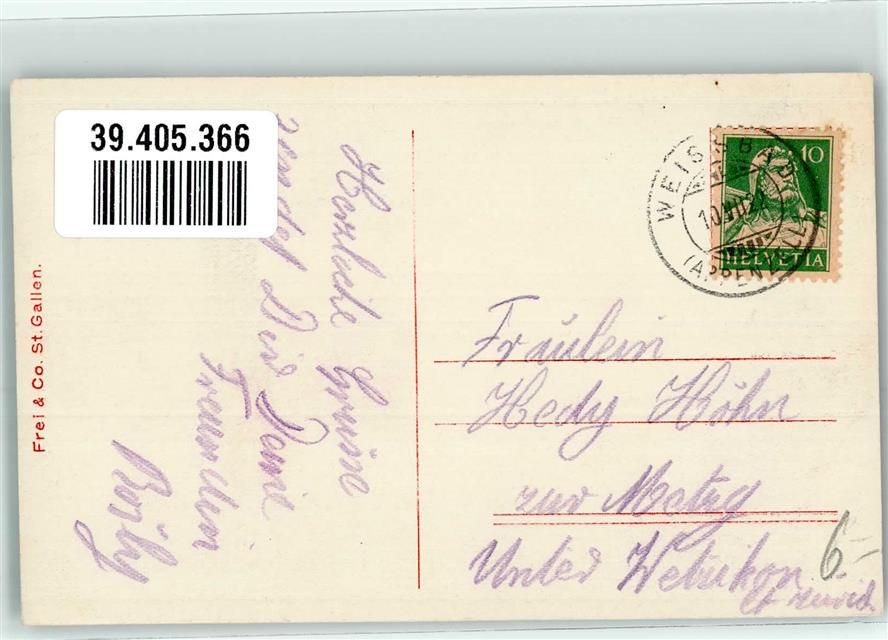 39.405.366
Herzliche Grüsse
sendet Dir Deine
Freundin
Frei & Co. St. Gallen.
WEISSBAD
(APPENZELL)
10
HELVETIA
Fräulein
Hedy Höhn
zur Metzg
Unter Wetzikon
Ct. Zürich
6.-